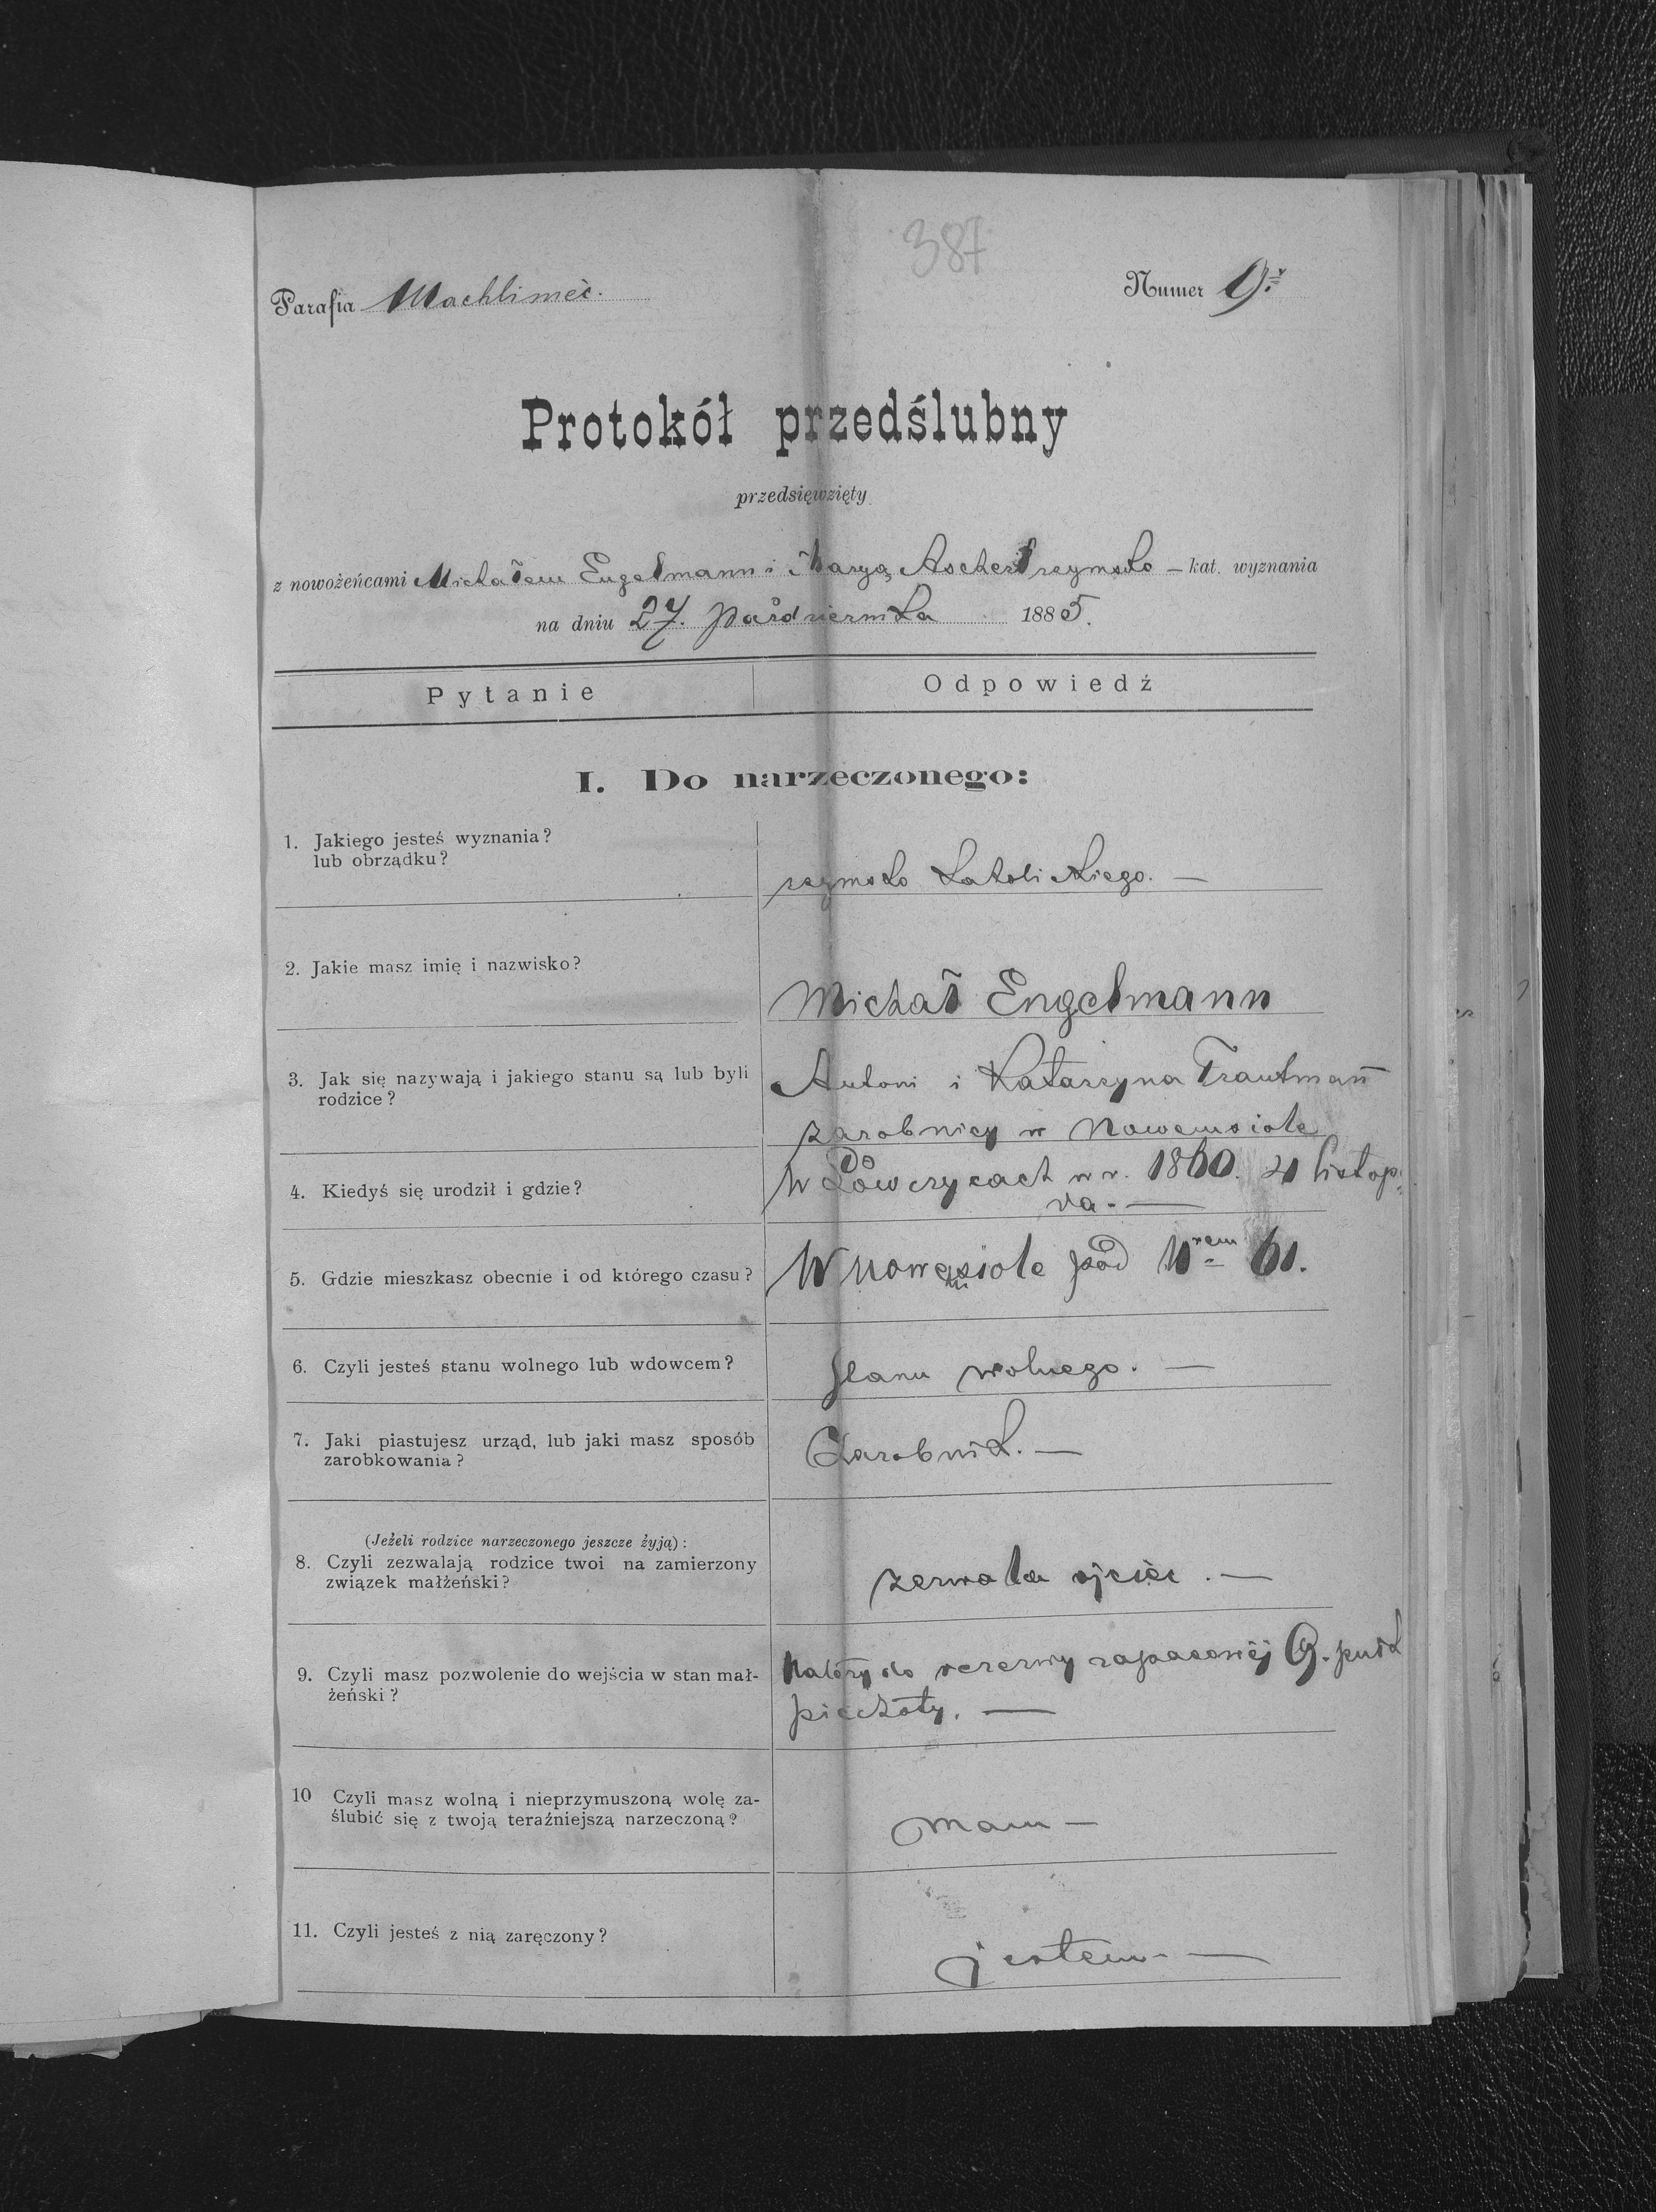 387
Parafia Machliniec. Numer 9.
Protokół przedślubny
przedsięwzięty
z nowożeńcami Michałem Engelmann i Maryą Ascherl rzymsko – kat. wyznania
na dniu 27. Października 1885.
Pytanie Odpowiedź
I. Do narzeczonego:
1. Jakiego jesteś wyznania?
lub obrządku?
rzymsko katolickiego. —
2. Jakie masz imię i nazwisko?
Michał Engelmann
3. Jak się nazywają i jakiego stanu są lub byli
rodzice?
Antoni i Katarzyna Trautman̄
zarobnicy w Nowemsiole
4. Kiedyś się urodził i gdzie?
W Łówczycach w r. 1860. 4 listop=
da. —
5. Gdzie mieszkasz obecnie i od którego czasu?
W nowemsiole pod Nrem 61.
6. Czyli jesteś stanu wolnego lub wdowcem?
stanu wolnego. —
7. Jaki piastujesz urząd, lub jaki masz sposób
zarobkowania?
Zarobnik. —
(Jeżeli rodzice narzeczonego jeszcze żyją):
8. Czyli zezwalają rodzice twoi na zamierzony
związek małżeński?
zezwala ojciec. —
9. Czyli masz pozwolenie do wejścia w stan mał-
żeński?
Należy do rezerwy zapasowéj 9. pułk
piechoty. —
10 Czyli masz wolną i nieprzymuszoną wolę za-
ślubić się z twoją teraźniejszą narzeczoną?
mam —
11. Czyli jesteś z nią zaręczony?
jestem —